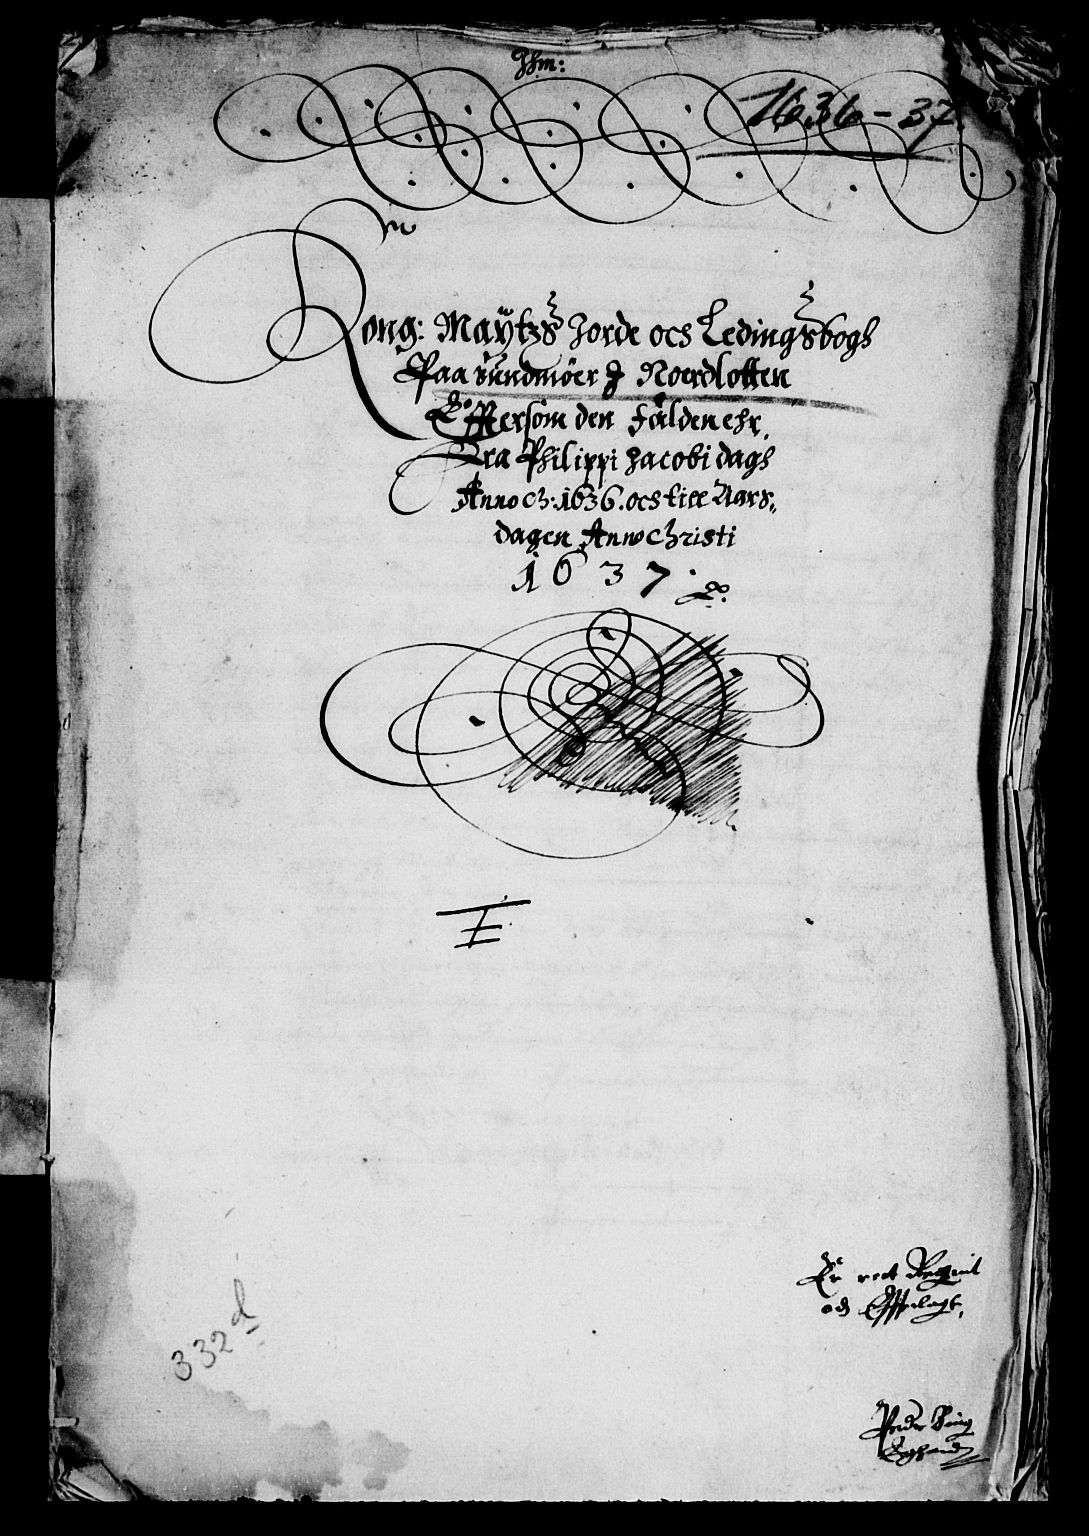 Jhm:
1636-37.
Kong: Maÿtzs Jorde och Ledingsbogh
Paa Sundmöer J Noerdlotten
Efftersom den Falden ehr,
Fra Philippi Jacobi dagh
Anno Ch: 1636. och till Aars,,
dagen Anno Christi
1637.
E
Er ret
och
332d
Peder